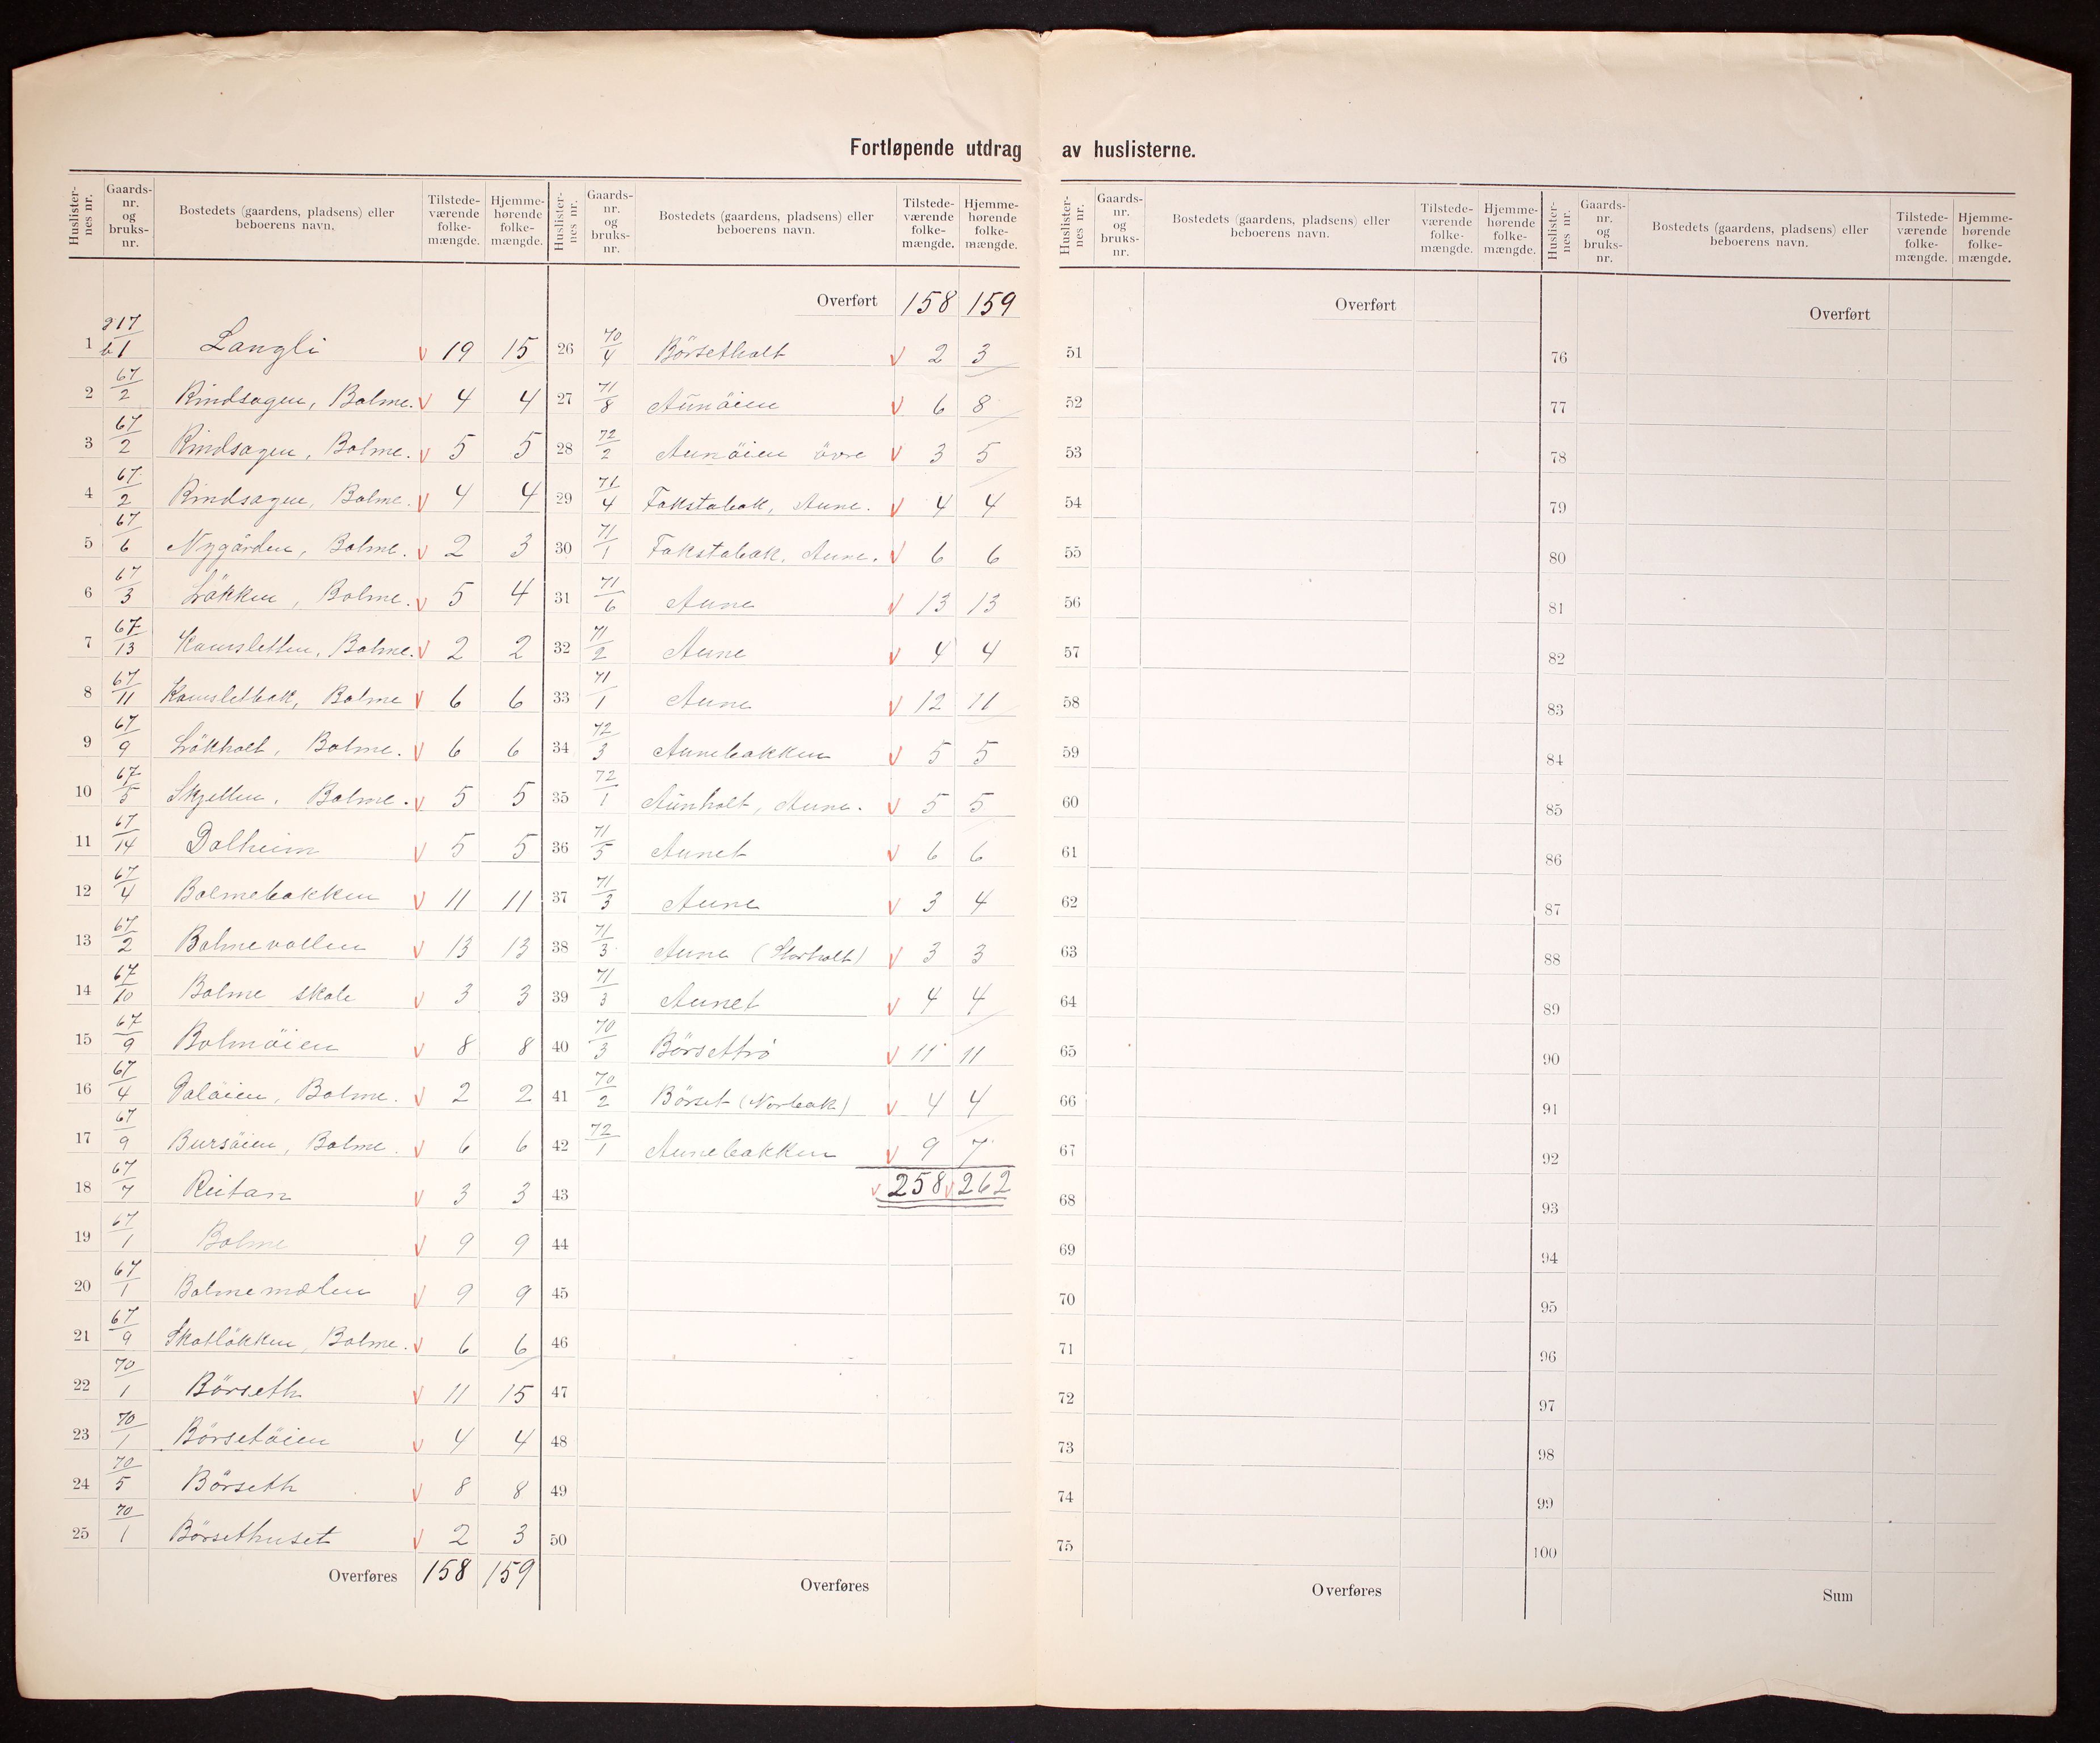 Fortløpende utdrag av huslisterne.
Huslisternes nr. Gaards-nr. og bruks-nr. Bostedets (gaardens, pladsens) eller beboerens navn. Tilstede-værende folke-mængde. Hjemme-hørende folke-mængde.
1 g 17 / b 1 Langli v 19 15
2 67/2 Rindsagen, Bolme. v 4 4
3 67/2 Rindsagen, Bolme. v 5 5
4 67/2 Rindsagen, Bolme. v 4 4
5 67/6 Nygården, Bolme. v 2 3
6 67/3 Lökken, Bolme. v 5 4
7 67/13 Kamsletten, Bolme. v 2 2
8 67/11 Kamsletbak, Bolme v 6 6
9 67/9 Lökholt, Bolme. v 6 6
10 67/5 Skjellen, Bolme. v 5 5
11 67/14 Dalheim v 5 5
12 67/4 Bolmebakken v 11 11
13 67/2 Bolmevollen v 13 13
14 67/10 Bolme skole v 3 3
15 67/9 Bolmöien v 8 8
16 67/4 Paløien, Bolme. v 2 2
17 67/9 Bursöien, Bolme. v 6 6
18 67/7 Reitan v 3 3
19 67/1 Bolme v 9 9
20 67/1 Bolmemælen v 9 9
21 67/9 Skotlökken, Bolme. v 6 6
22 70/1 Börseth v 11 15
23 70/1 Börsetöien v 4 4
24 70/5 Börseth v 8 8
25 70/1 Börsethuset v 2 3
Overføres 158 159
Huslisternes nr. Gaards-nr. og bruks-nr. Bostedets (gaardens, pladsens) eller beboerens navn. Tilstede-værende folke-mængde. Hjemme-hørende folke-mængde.
Overført 158 159
26 70/4 Börsetholt v 2 3
27 71/8 Aunöien v 6 8
28 72/2 Aunöien övre v 3 5
29 71/4 Fokstabak, Aune. v 4 4
30 71/1 Fokstabak, Aune. v 6 6
31 71/6 Aune v 13 13
32 71/2 Aune v 4 4
33 71/1 Aune v 12 11
34 72/3 Aunebakken v 5 5
35 72/1 Aunholt, Aune. v 5 5
36 71/5 Aunet v 6 6
37 71/3 Aune v 3 4
38 71/3 Aune (Storholt) v 3 3
39 71/3 Aunet v 4 4
40 70/3 Börsettrö v 11 11
41 70/2 Börset (Norbak) v 4 4
42 72/1 Aunebakken v 9 7
43 v 258 v 262
44
45
46
47
48
49
50
Overføres
Huslisternes nr. Gaards-nr. og bruks-nr. Bostedets (gaardens, pladsens) eller beboerens navn. Tilstede-værende folke-mængde. Hjemme-hørende folke-mængde.
Overført
51
52
53
54
55
56
57
58
59
60
61
62
63
64
65
66
67
68
69
70
71
72
73
74
75
Overføres
Huslisternes nr. Gaards-nr. og bruks-nr. Bostedets (gaardens, pladsens) eller beboerens navn. Tilstede-værende folke-mængde. Hjemme-hørende folke-mængde.
Overført
76
77
78
79
80
81
82
83
84
85
86
87
88
89
90
91
92
93
94
95
96
97
98
99
100
Sum